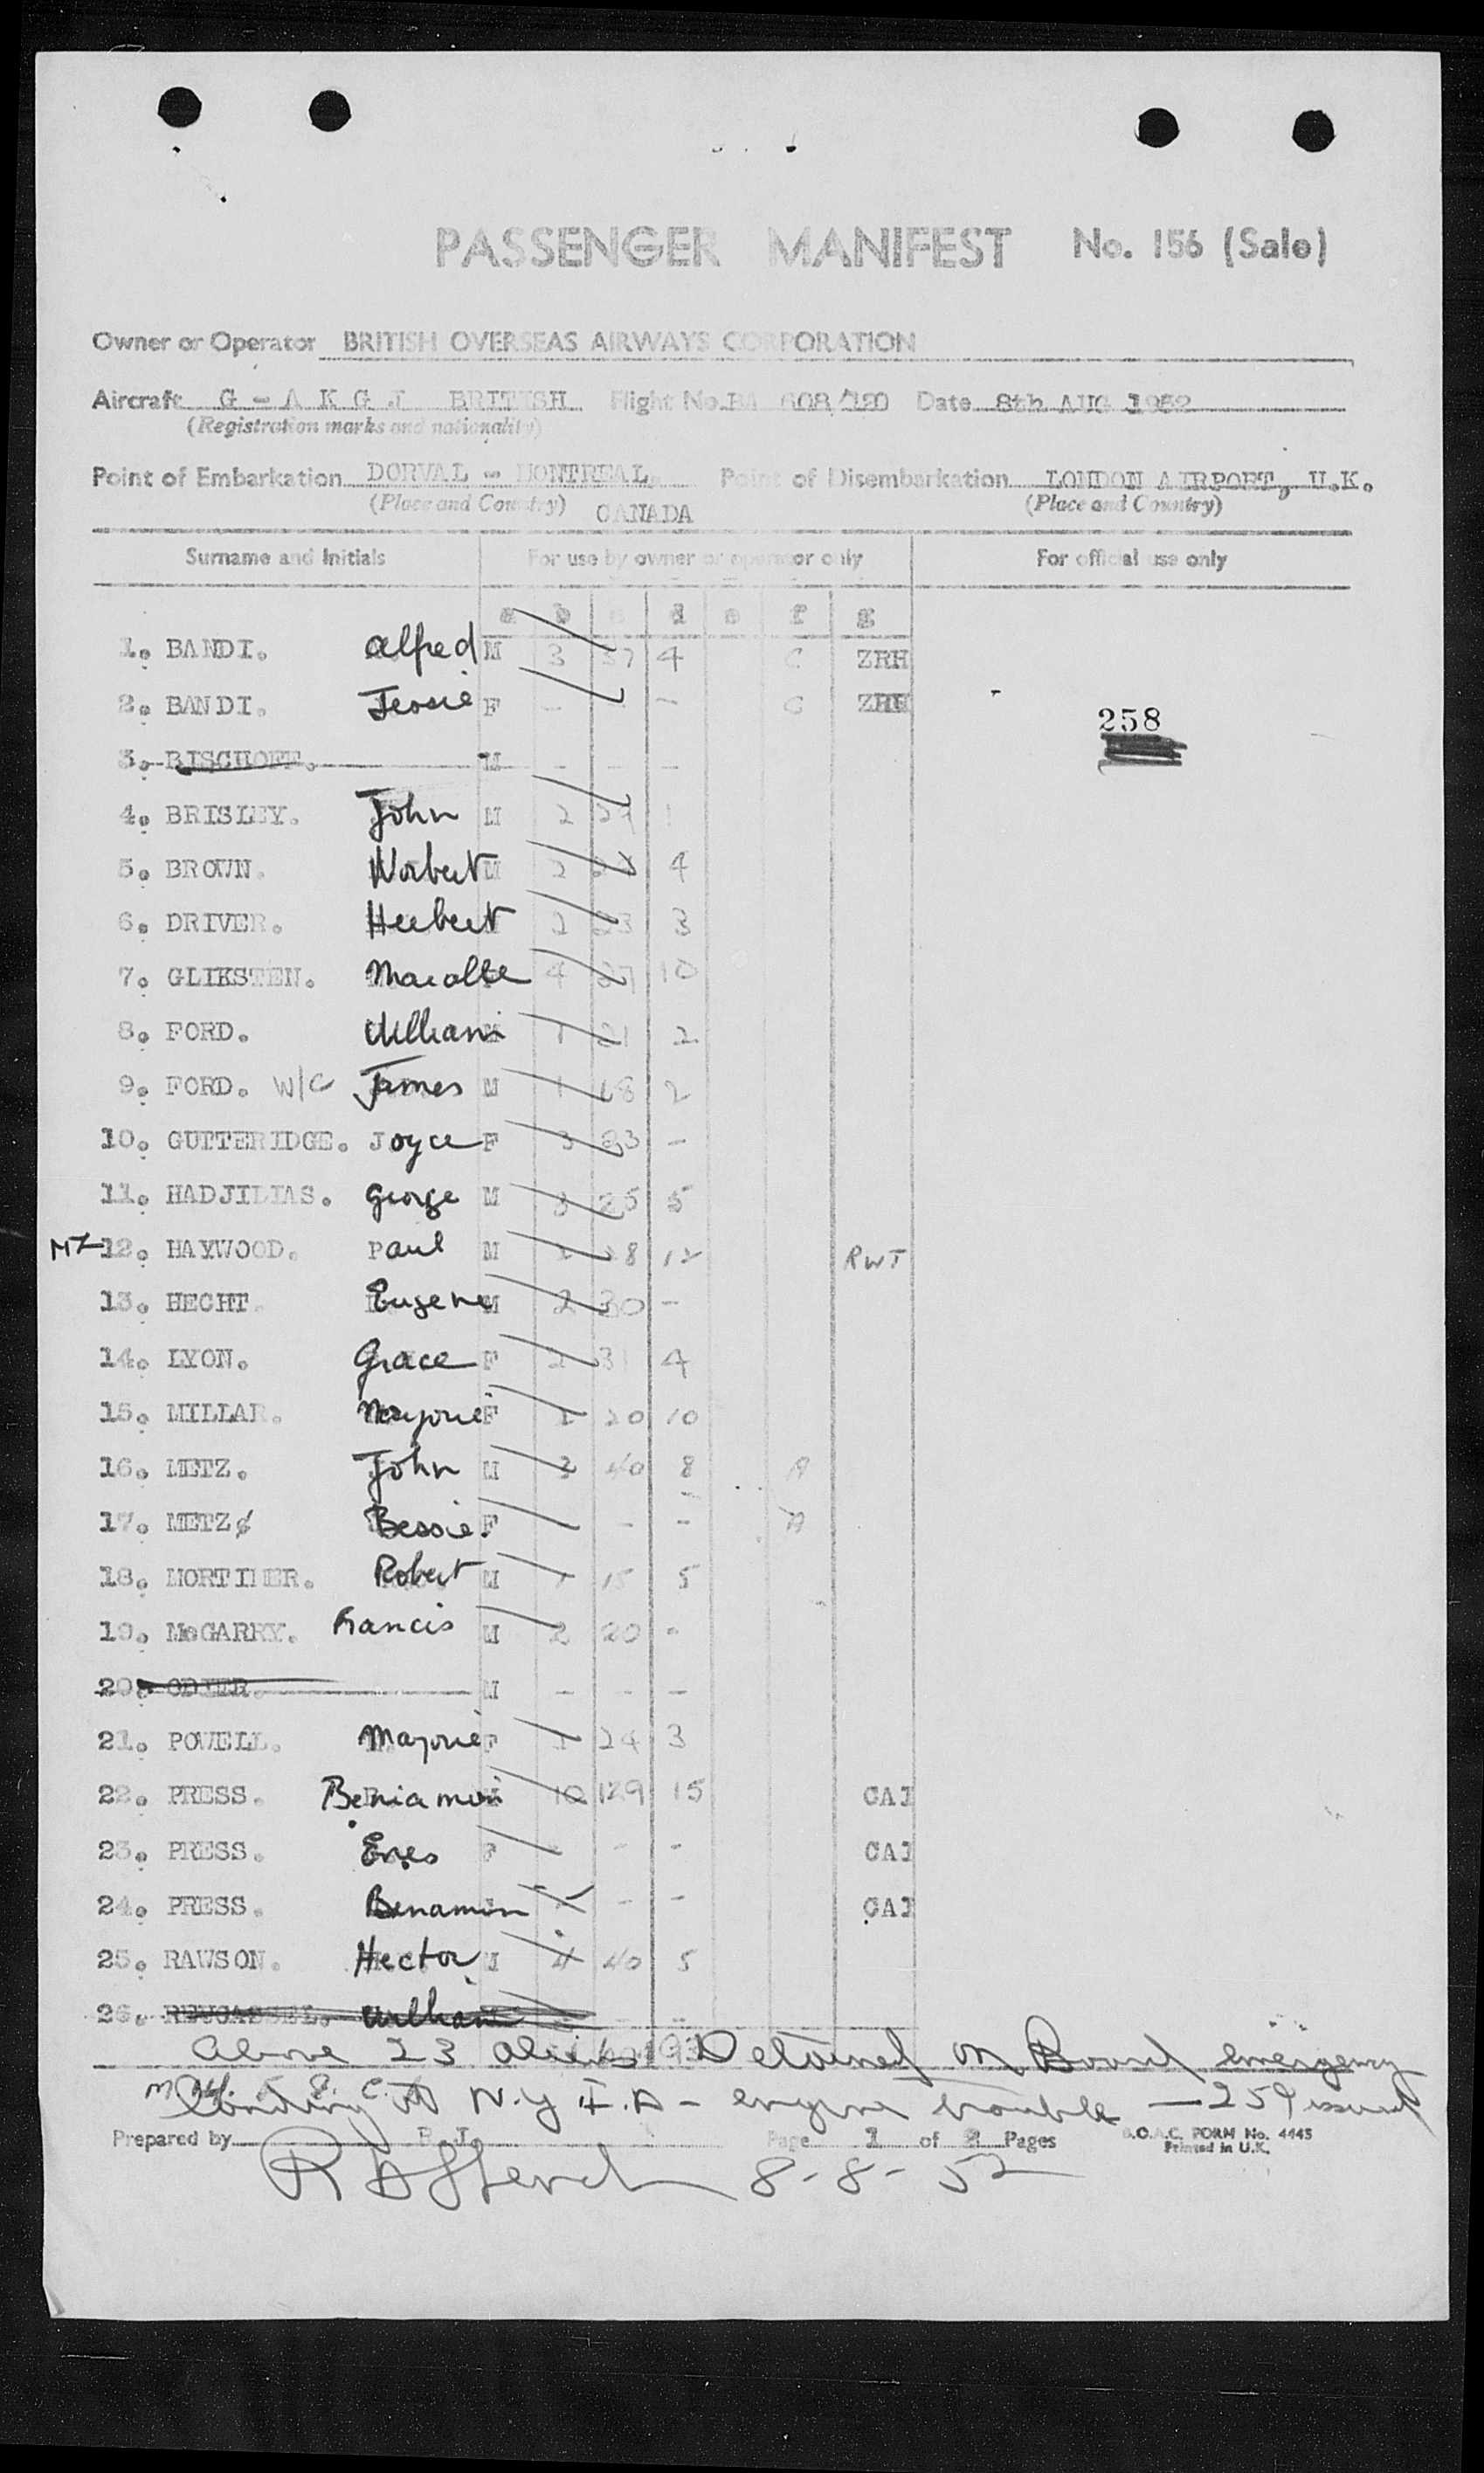 PASSENGER MANIFEST No. 156 (Sale)
Owner or Operator BRITISH OVERSEAS AIRWAYS CORPORATION
Aircraft G - A K G J BRITISH Flight No. BA 608/120 Date 8th AUG 1952
(Registration marks and nationality)
Point of Embarkation DORVAL - MONTREAL, Point of Disembarkation LONDON AIRPORT, U.K.
(Place and Country) CANADA (Place and Country)
Surname and Initials For use by owner or operator only For official use only
a b c d e f g
1. BANDI. Alfred M 3 57 4 C ZRH
2. BANDI. Jessie F - - C ZRH
258
3. BISCHOFF. M - - -
4. BRISLEY. John M 2 27 1
5. BROWN. Norbert M 2 4
6. DRIVER. Herbert 2 23 3
7. GLIKSTEN. 4 27 10
8. FORD. William 1 21 2
9. FORD. W/C James M 1 18 2
10. GUTTERIDGE. Joyce F 3 23 -
11. HADJILIAS. George M 3 25 5
12. HAYWOOD. Paul M 12 RWT
13. HECHT. Eugene M 2 30 -
14. LYON. Grace F 2 31 4
15. MILLAR. Marjorie F 1 20 10
16. METZ. John M 3 40 8 A
17. METZ Bessie F - - A
18. MORTIMER. Robert M 1 15 5
19. McGARRY. Francis M 2 20 -
20. ODIER. M - - -
21. POWELL. Marjorie F 1 24 3
22. PRESS. Beniamin 10 129 15 CAI
23. PRESS. F - - CAI
24. PRESS. Benamin - - CAI
25. RAWSON. Hector M 4 40 5
26. William
Above 23 aliens Detained on Board emergency
landing at N.Y.I.A - engine trouble - 259 issued
Prepared by B.J. Page 1 of 2 Pages B.O.A.C. FORM No. 4445
Printed in U.K.
8-8-52